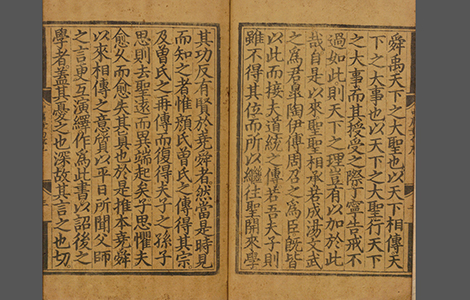 舜禹天下之大聖也以天下相傳天
下之大事也以天下之大聖行天下
之大事而其授受之際丁寧告戒不
過如此則天下之理豈有以加於此
哉自是以來聖聖相承若成湯文武
之為君皐陶伊傅周召之為臣既皆
以此而接夫道統之傳若吾夫子則
雖不得其位而所以繼往聖開來學
其功反有賢於堯舜者然當是時見
而知之者惟顏氏曾氏之傳得其宗
及曾氏之再傳而復得夫子之孫子
思則去聖遠而異端起矣子思懼夫
愈久而愈失其眞也於是推本堯舜
以來相傳之意質以平日所聞父師
之言更互演繹作為此書以詔後之
學者蓋其憂之也深故其言之也切